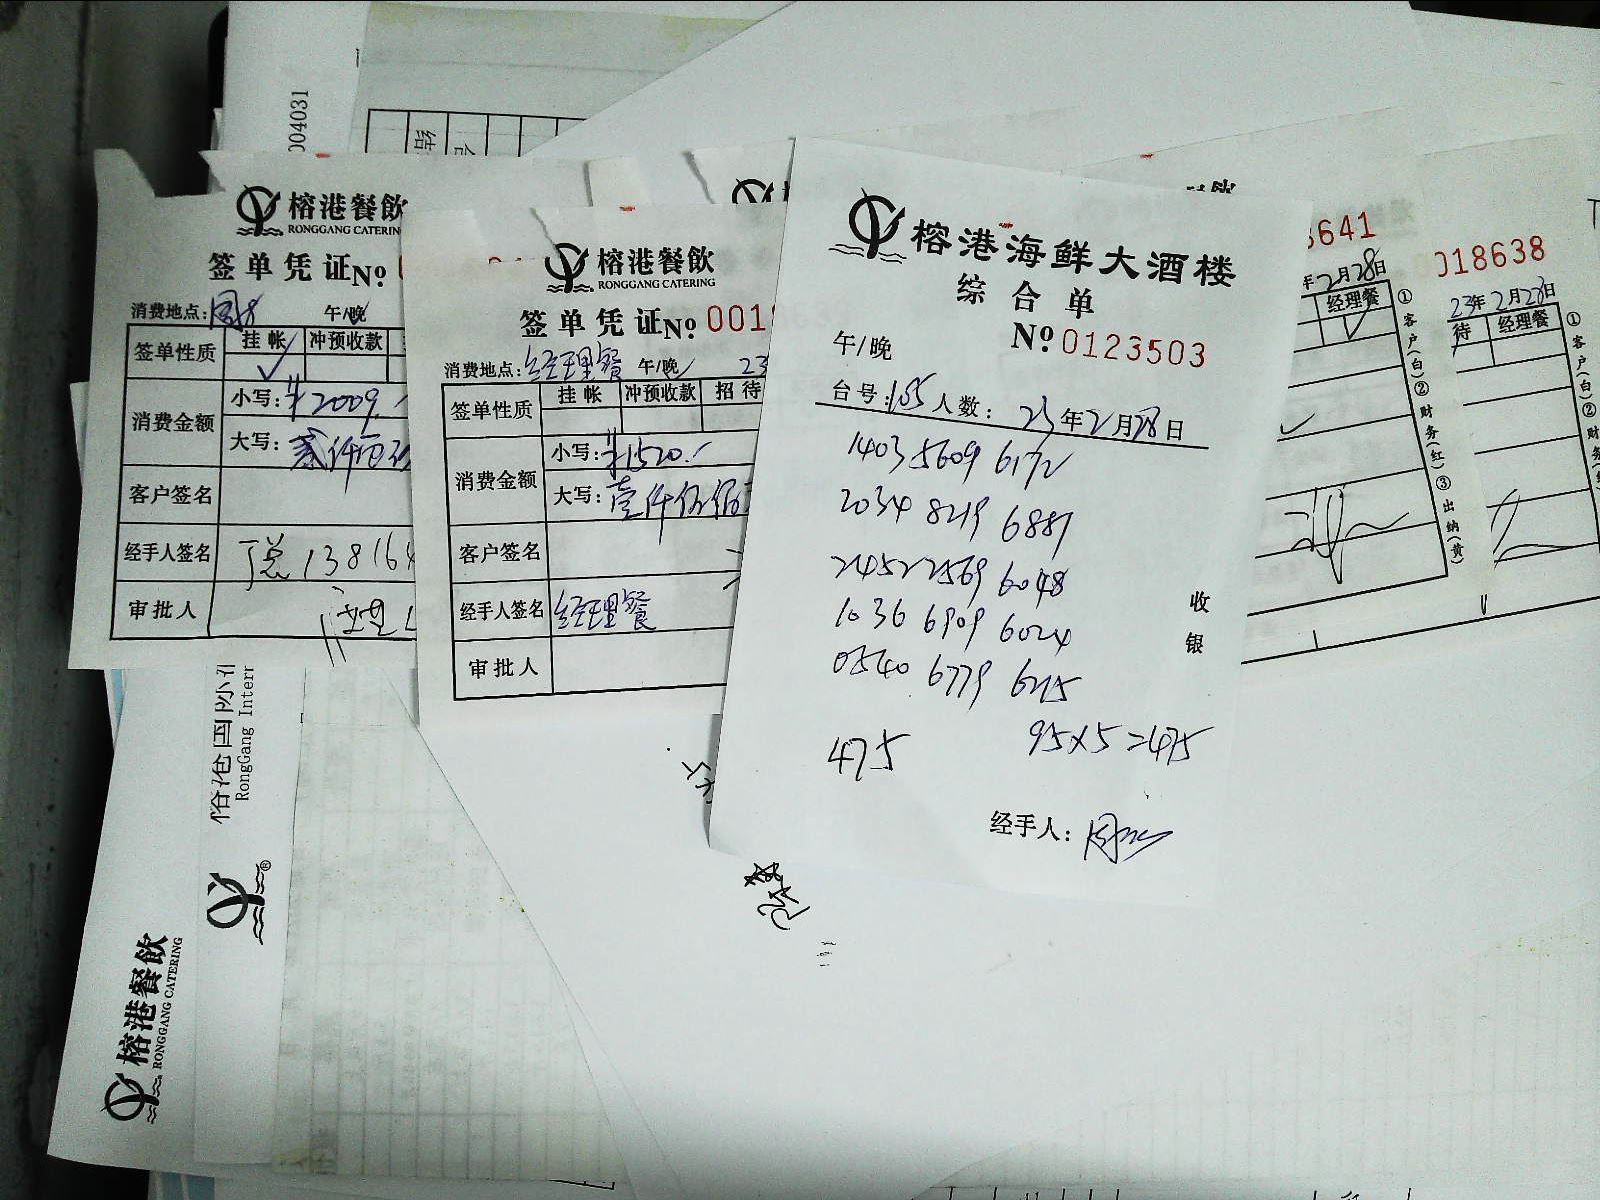 004031
结
榕港餐飲
RONGGANG CATERIN
签单凭证 №
消费地点:
午/晚
签单性质
挂帐
冲预收款
消费金额
小写: ¥2009.
大写: 贰仟
客户签名
经手人签名
138164
审批人
榕港餐飲
RONGGANG CATERING
签单凭证 № 001
消费地点: 经理餐 午/晚 23
签单性质
挂帐
冲预收款
招待
消费金额
小写: ¥1520.
大写: 壹仟伍佰
客户签名
经手人签名
经理餐
审批人
榕港海鲜大酒楼
综合单
№ 0123503
午/晚
台号: 105 人数: 23年2月28日
1403 5609 6172
2034 8219 6887
2452 2569 6048
1036 6909 6024
0540 6779 6215
475
95×5=475
收银
经手人:
6641
年2月28日
经理餐
①客户(白)②财务(红)③出纳(黄)
018638
23年2月28日
待
经理餐
①客户(白)②财务
RongGang Interr
榕港餐飲
RONGGANG CATERING